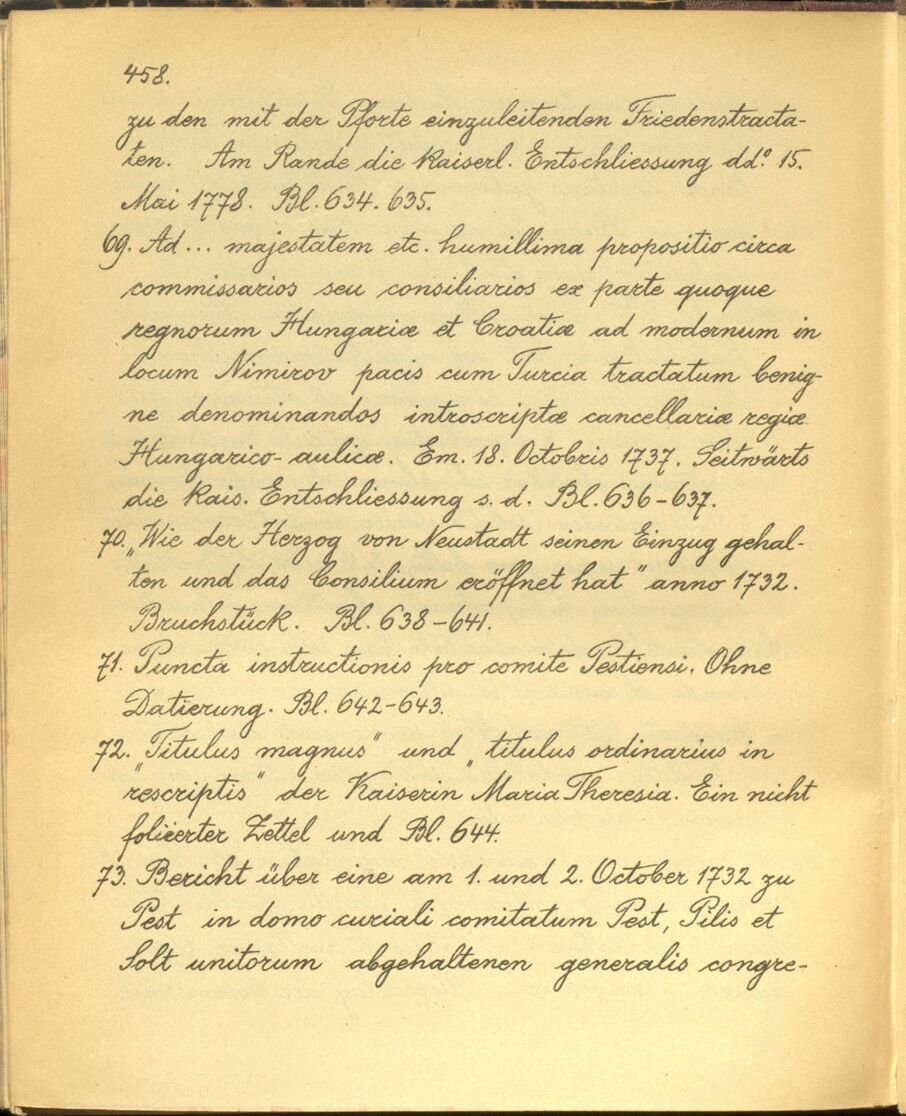 458.
zu den mit der Pforte einzuleitenden Friedenstracta-
ten. Am Rande die Kaiserl. Entschliessung dd.º 15.
Mai 1778. Bl. 634. 635.
69. Ad... majestatem etc. humillima propositio circa
commissarios seu consiliarios ex parte quoque
regnorum Hungariæ et Croatiæ ad modernum in
locum Nimirov pacis cum Turcia tractatum benig-
ne denominandos introscriptæ cancellariæ regiæ
Hungarico-aulicæ. Em. 18. Octobris 1737. Seitwärts
die Kais. Entschliessung s. d. Bl. 636-637.
70. „Wie der Herzog von Neustadt seinen Einzug gehal-
ten und das Consilium eröffnet hat" anno 1732.
Bruchstück. Bl. 638-641.
71. Puncta instructionis pro comite Pestiensi. Ohne
Datierung. Bl. 642-643.
72. „Titulus magnus" und „titulus ordinarius in
rescriptis" der Kaiserin Maria Theresia. Ein nicht
folierter Zettel und Bl. 644.
73. Bericht über eine am 1. und 2. October 1732 zu
Pest in domo curiali comitatum Pest, Pilis et
Solt unitorum abgehaltenen generalis congre-